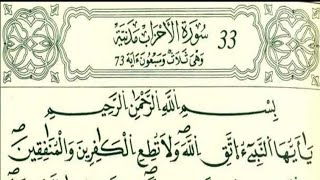 سُورَةُ الأَحْزَابِ مَدَنِيَّة 33
وَهِيَ ثَلَاثٌ وَسَبْعُونَ ءَايَة 73
بِسْمِ اللَّهِ الرَّحْمَٰنِ الرَّحِيمِ
يَٰأَيُّهَا النَّبِيُّءُ اتَّقِ اللَّهَ وَلَا تُطِعِ الْكَٰفِرِينَ وَالْمُنَٰفِقِينَ